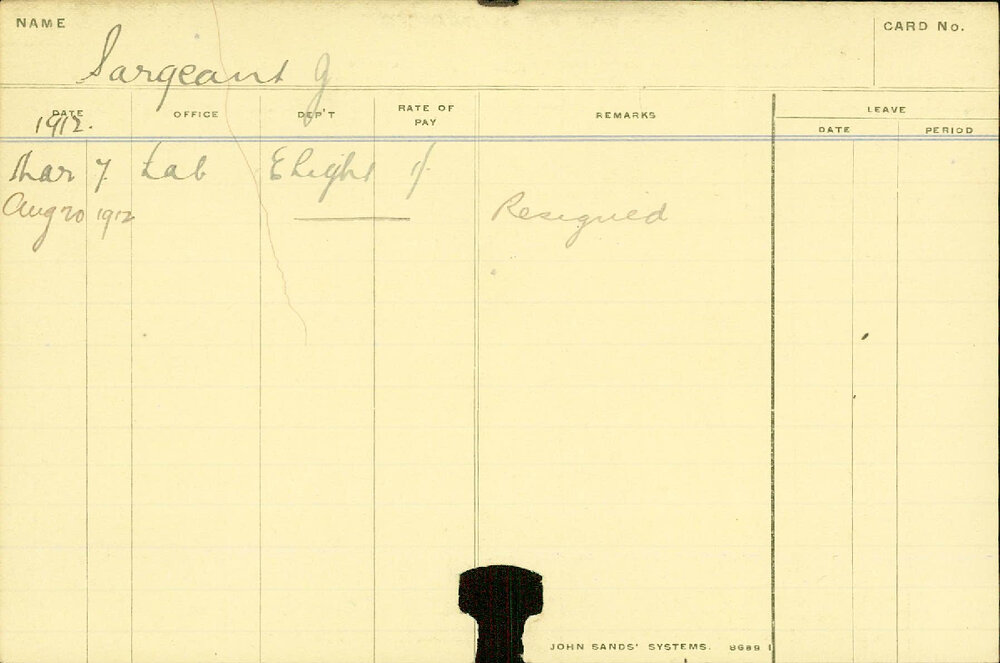 NAME
CARD No.
Sargeant J
DATE OFFICE DEP'T RATE OF PAY REMARKS LEAVE
DATE PERIOD
1912.
Mar 7 Lab E Light 1/
Aug 20 1912 Resigned
JOHN SANDS' SYSTEMS.